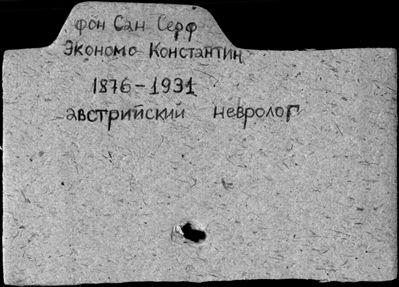 фон Сан Серф
Экономо Константин
1876-1931
австрийский невролог